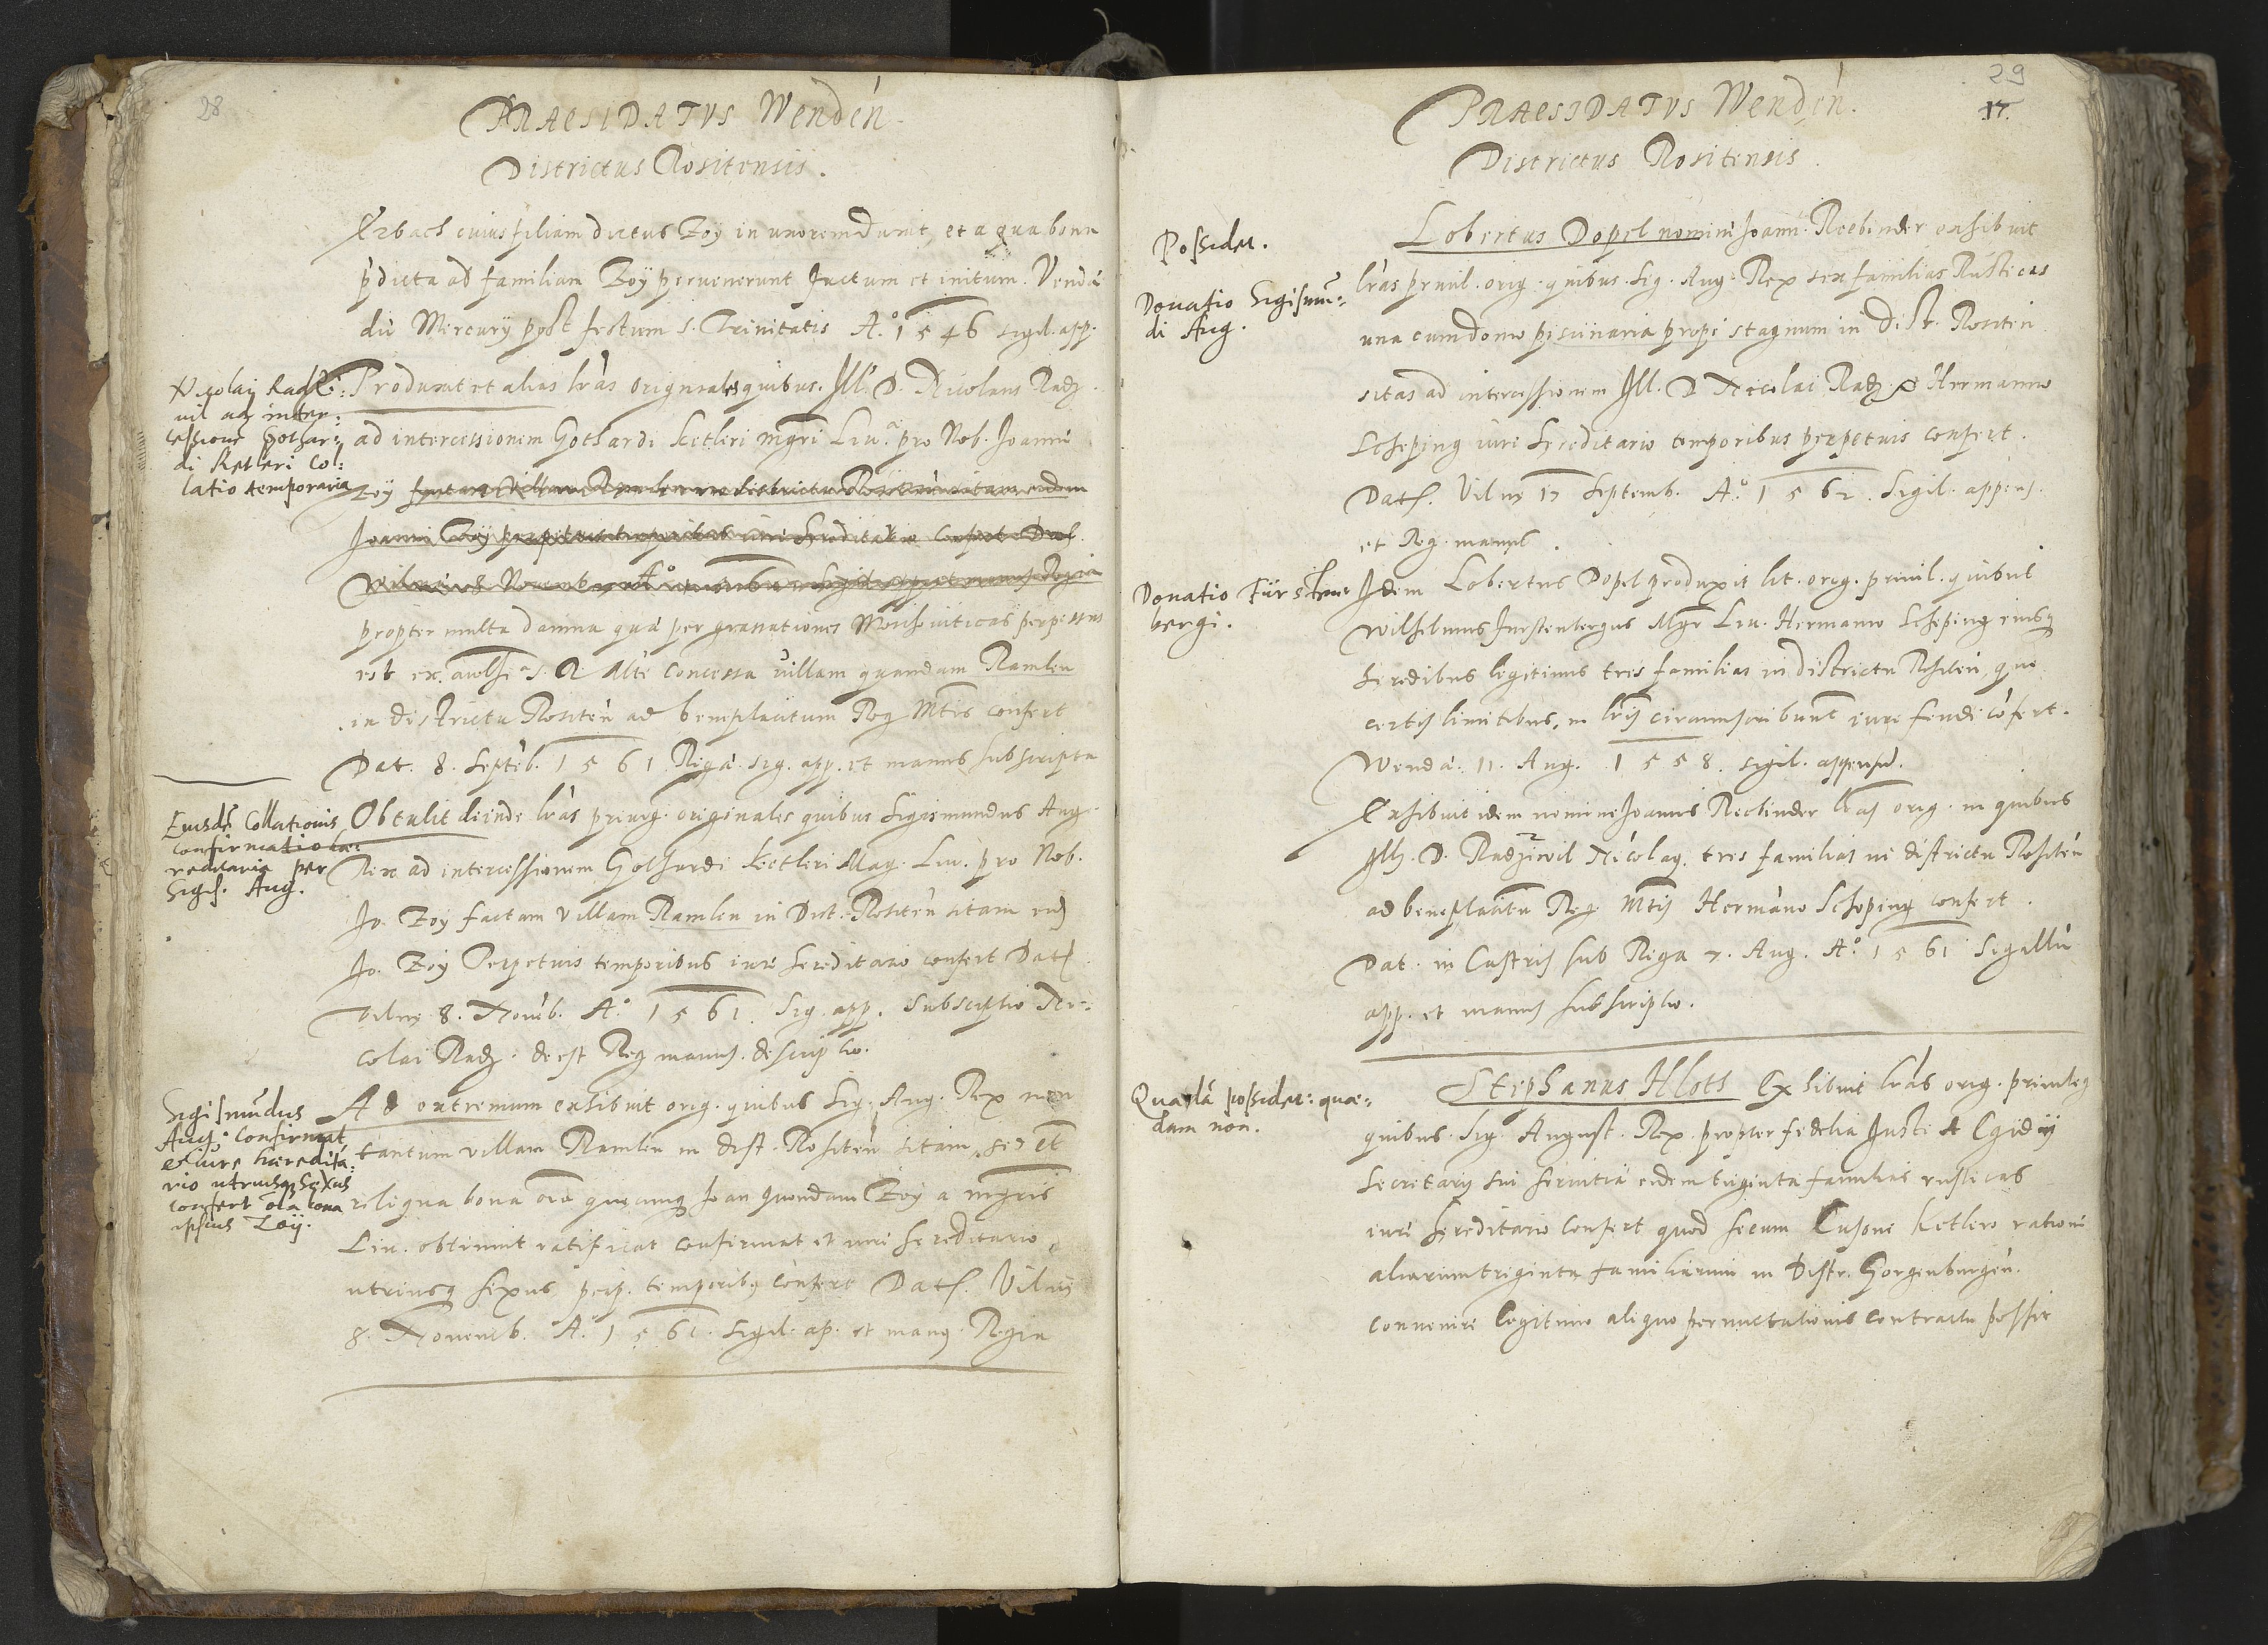 28
PRAESIDATVS Wendēn.
Districtus Rositensis.
Erbach cuius filiam dictus Zoy in uxorem duxit, et a qua bona
pdicta ad familiam Zoÿ peruenerunt factum et initum. Vendæ
die Mercurÿ post festum S. Trinitatis A.° 1546 sigil. app.
Nicolaj Radzi:
vil ad inter:
cessione Gothar:
di Ketleri col:
latio temporaria
Produxit et alias lras originales quibus. Ill. D. Nicolaus Radz.
ad intercessionem Gothardi Ketleri mgri Liu.ᵃ pro Nob. Joanni
Zoy factam villam Ramlen in districtu Rositen sitam eidem
Joanni Zoÿ perpetuis temporibus iure hereditario confert Dat.
Wilnæ 8 Novemb. A° sigil. app. et manus Regia
propter multa damna quæ per grassationes Moschoviticas perpessus
est ex. authe S. R Mte concessa villam quandam Ramlen
in districtu Rositen ad beneplacitum Reg Mtis confert
Dat. 8. Septēb. 1561 Rigæ. sig. app. et manus subscripta
Eiusdē Collationis
confirmatio hæ:
reditaria per
Sigis. Aug.
Obtulit deinde lras priuig. originales quibus Sigismundus Aug.
Rex ad intercessionem Gothardi Ketleri Mag. Liu. pro Nob.
Jo. Zoy factam villam Ramlen in Dist. Rositen sitam eid
Jo. Zoy Perpetuis temporibus iure hereditario confert Dat
Vilnę 8. Novēb. A.° 1561. Sig. app. Subscriptio Ni:
colai Radz. deest Reg manus. descriptio.
Sigismūdus
Aug. Confirmat
et iure hæredita:
rio utriusq Sexus
confert oīa bona
ipsius Zoÿ.
Ad extremum exhibuit orig. quibus Sig. Aug. Rex non
tantum villam Ramlen in dist. Rositen sitam, sed et
reliqua bona oīa quęcunq Joan quondam Zoy a mgris
Liu. obtinuit ratificat confirmat et iure hereditario
utriusq sexus perp. temporibq confert Dat. Vilnę
8. Novemb. A.° 1561. Sigil. ap. et manq. Regia
29
17.
PRAESIDATVS Wendēn.
Districtus Rositensis.
Possidet.
Lobertus Dopel nomine Joann. Recbinder exhibuit
Donatio Sigismū:
di Aug.
lras priuil. orig. quibus. Sig. Aug. Rex sex familias Rusticas
una cum domo piscinaria prope stagnum in dist. Rositen
sitas ad intercessionem Ill. D Nicolai Radz. Hermanno
Scheping iure hereditario temporibus perpetuis confert.
Dat. Vilnę 17 Septemb. A.° 1562. Sigil. appens.
et Reg. manus.
Donatio Fürsten
bergi.
Idem Lobertus Dopel produxit lit. orig. priuil. quibus
Wilhelmus Furstenbergus Mgr Liu. Hermanno Scheping eiusq
heredibus legitimis tres familias in districtu Rositen, quę
certis limitibus, in lris circumscribunt iure feudi cōfert.
Wendæ. 11. Aug. 1558. sigil. appensū.
Exhibuit idem nomine Joannis Recbinder lras orig. in quibus
Ill. D. Radziwil Nicolaq. tres familias in districtu Rositen
ad beneplacitū Reg Mtis Hermāno Schoping confert.
Dat. in Castris sub Riga 7. Aug. A.° 1561 Sigillū
app. et manus subscriptio.
Quædā possidet: quæ:
dam non.
Stephanus Klots Exhibuit lras orig. priuileg
quibus. Sig. August. Rex. propter fidelia Justi et Egidij
secretarij sui servitia eidem triginta familias rusticas
iure hereditario confert quod secum Ketlero ratione
aliarum triginta familiarum in Distr. Horgenburgēn.
convenire legitimo aliquo permutationis contractu possit